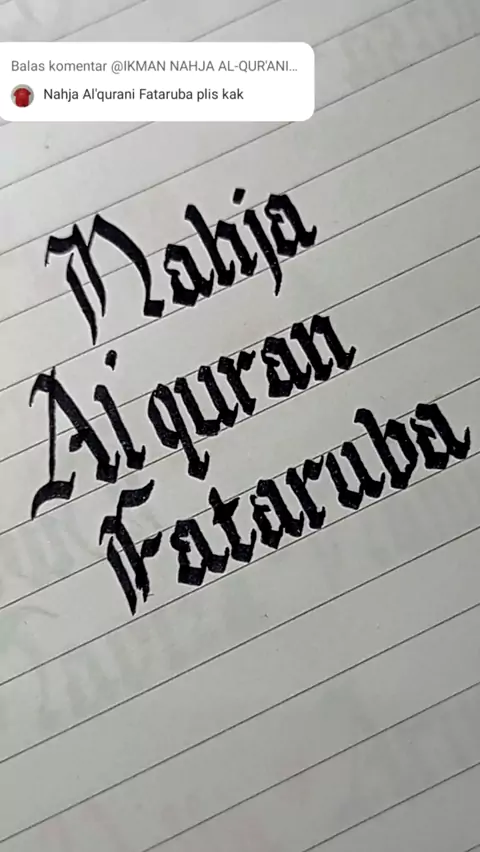 Balas komentar @IKMAN NAHJA AL-QUR'ANI...
Nahja Al'qurani Fataruba plis kak
Nahja
Al'quran
Fataruba